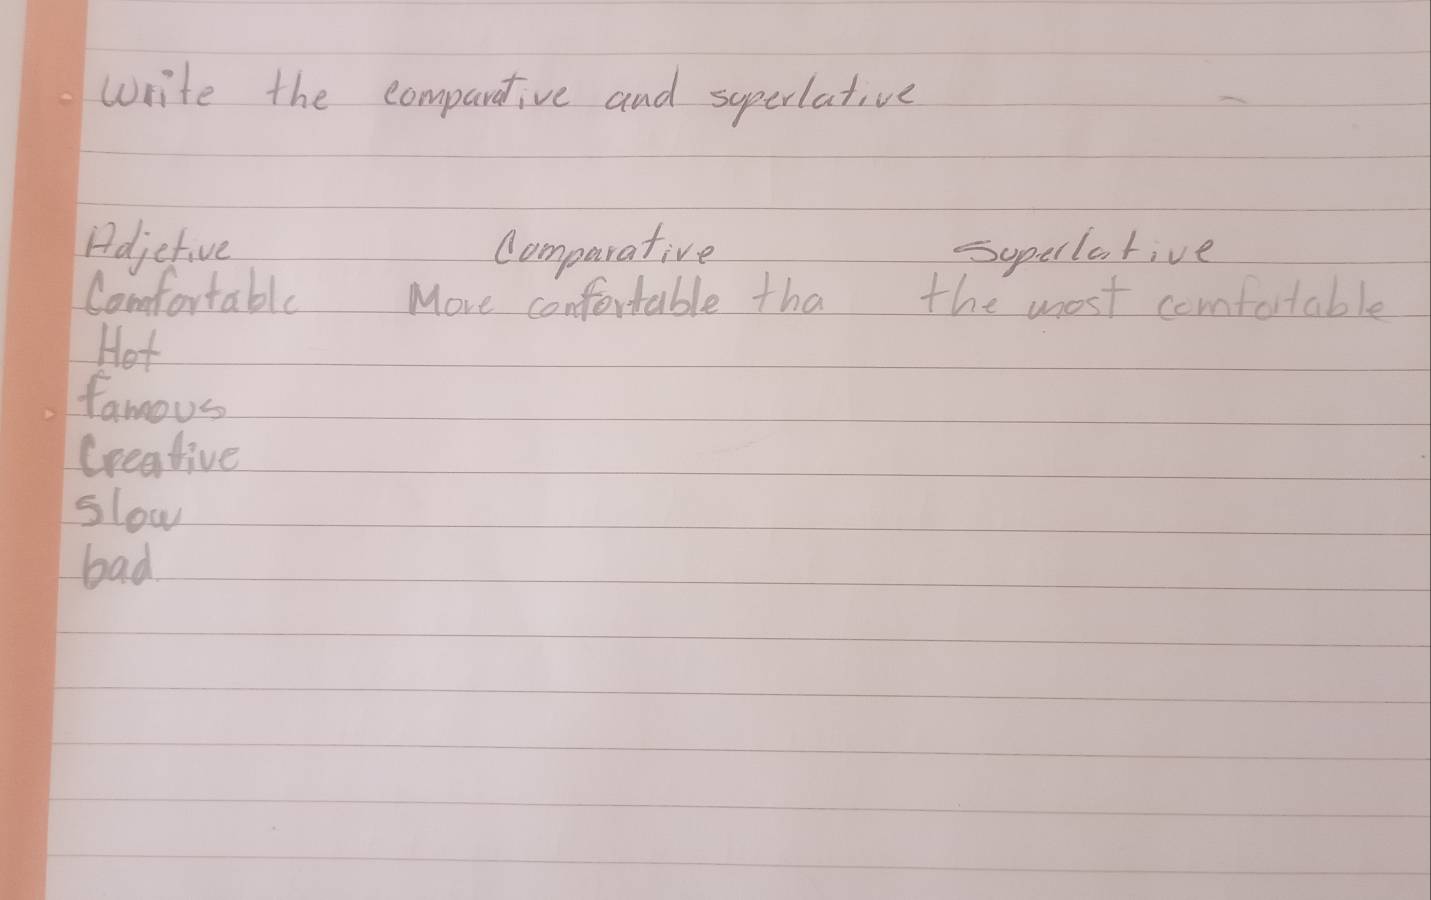 Write the comparative and superlative
Adjetive Comparative Superlative
Comfortable More confortable tha the most comfortable
Hot
famous
Creative
Slow
bad